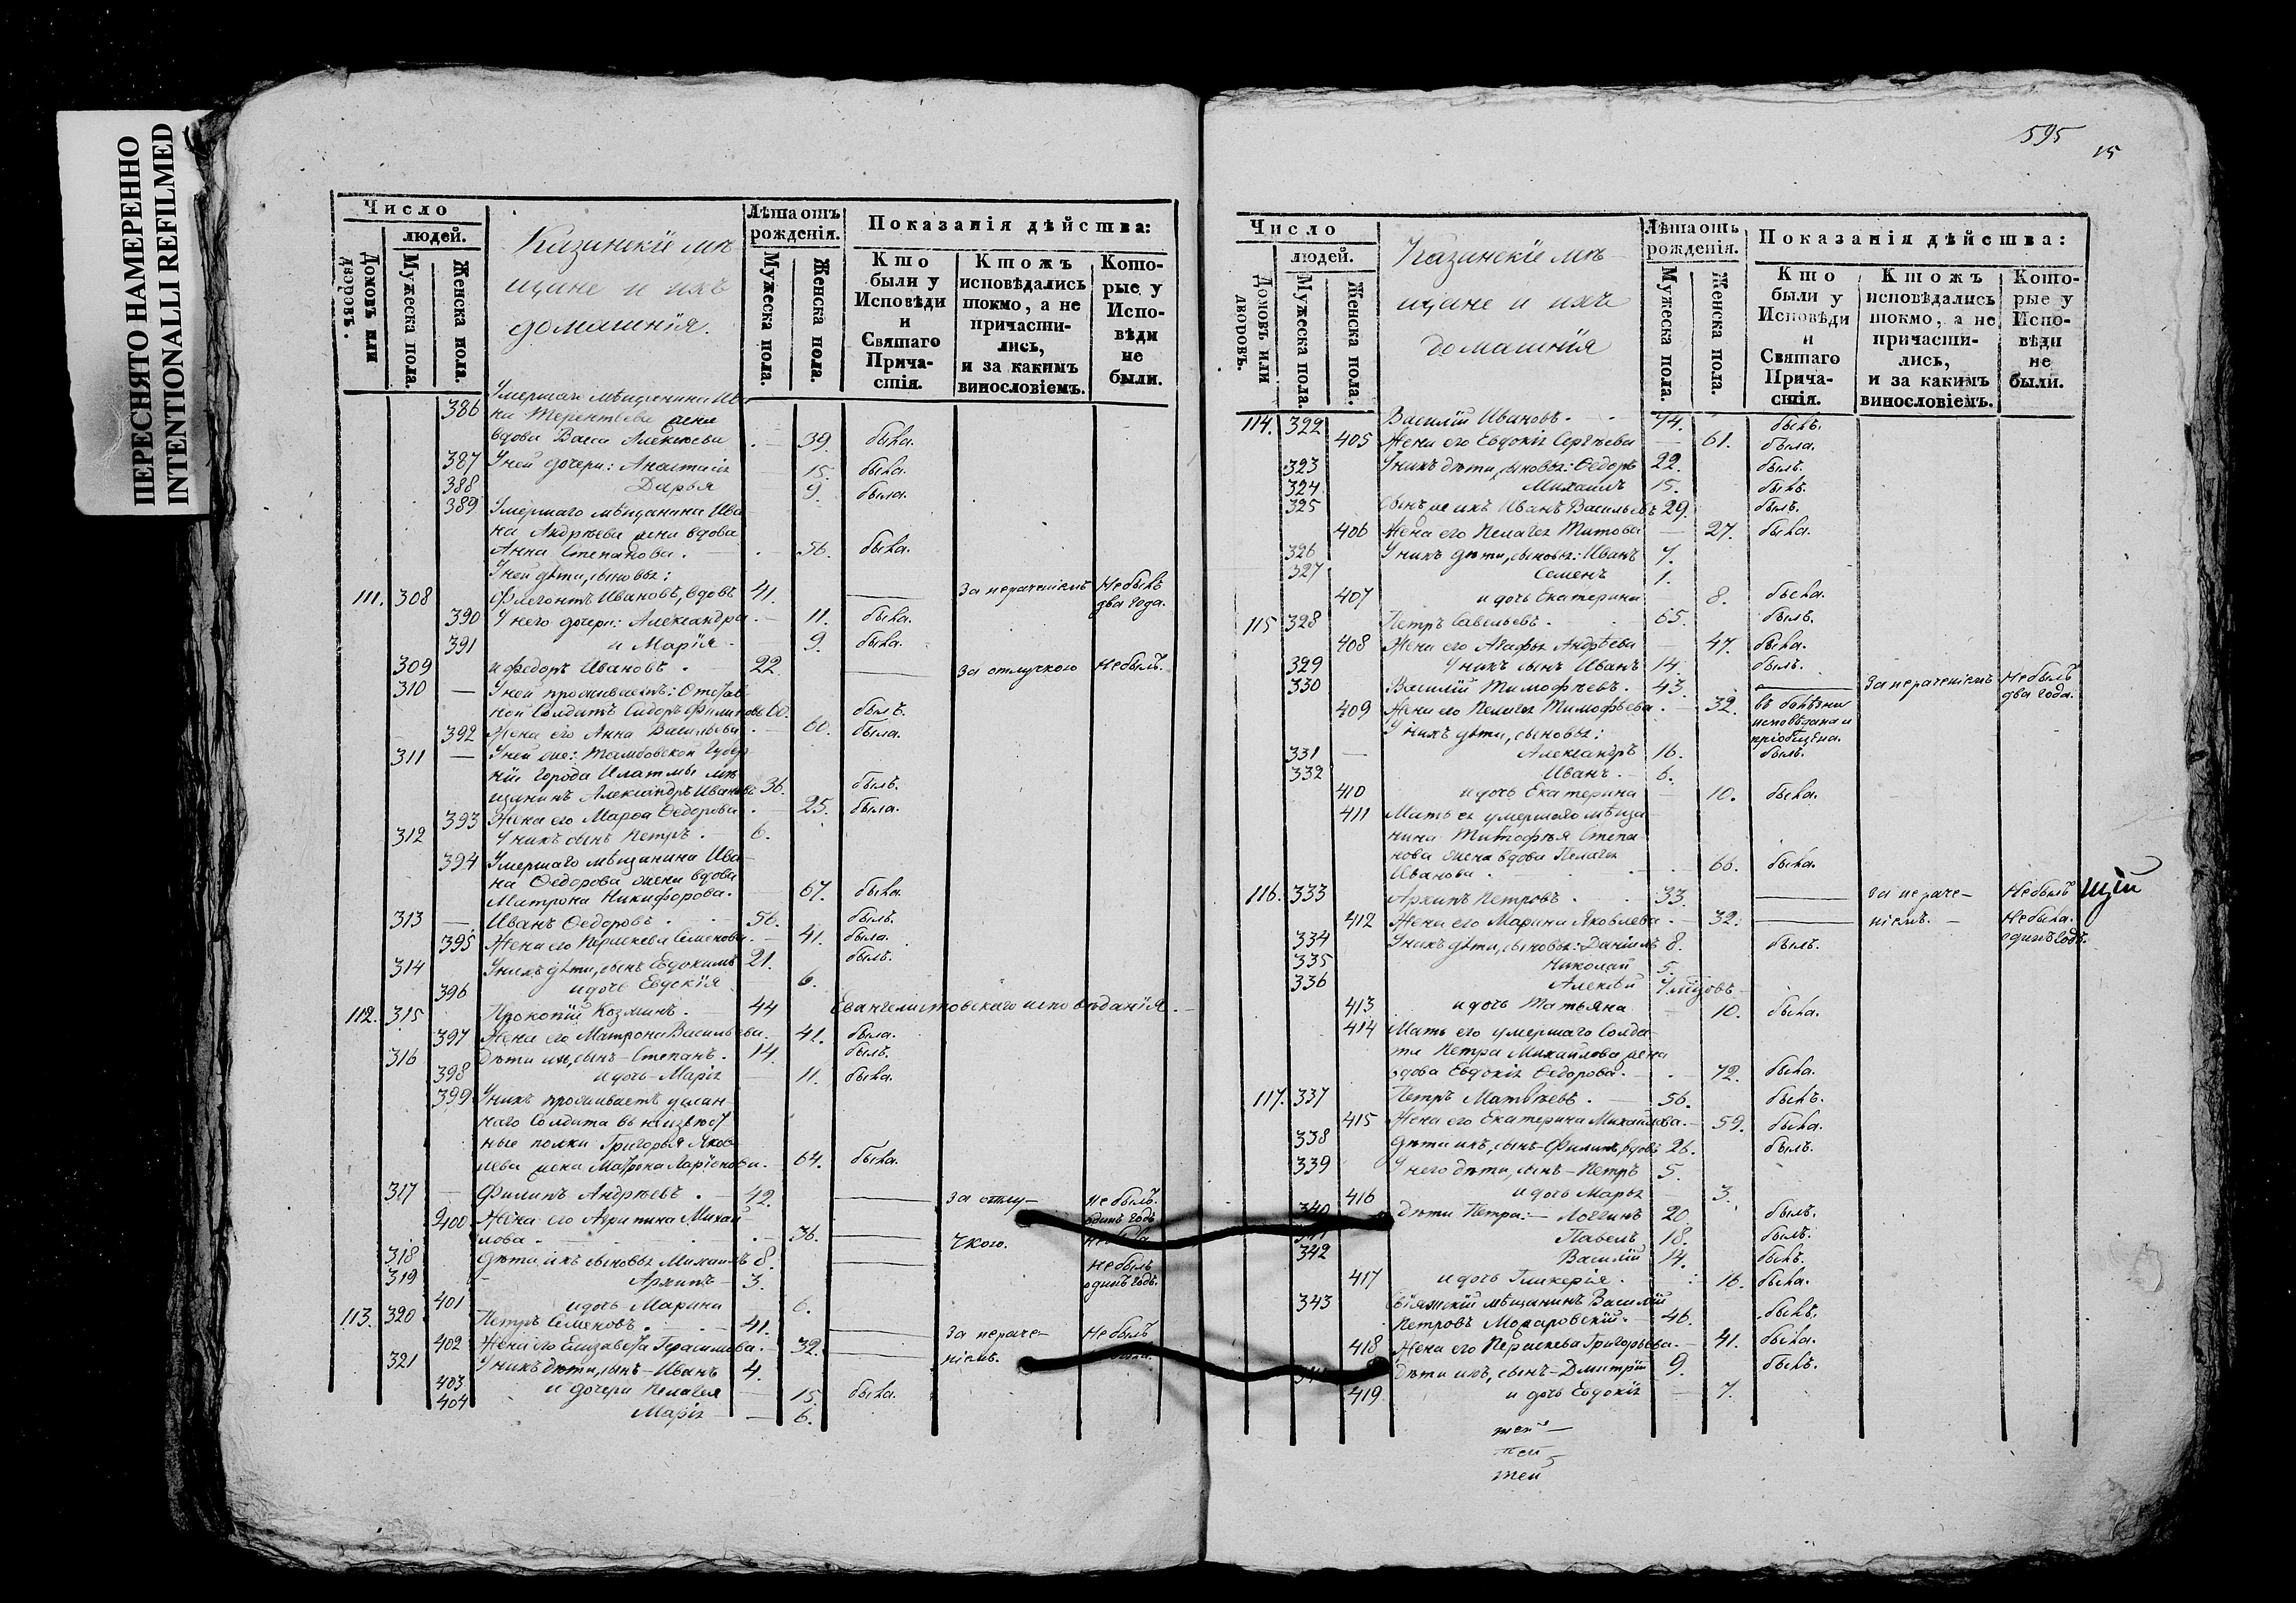 ПЕРЕСНЯТО НАМЕРЕННО
INTENTIONALLI REFILMED
Число
людей.
Домовъ или дворовъ.
Мужеска пола.
Женска пола.
Казанскіе мѣ-
щане и ихъ
домашнія.
Лѣта отъ
рожденія.
Мужеска пола.
Женска пола.
Показанія дѣйства:
Кто
были у
Исповѣди
и
Святаго
Прича-
стія.
Ктожъ
исповѣдались
токмо, а не
причасти-
лись,
и за какимъ
винословіемъ.
Кото-
рые у
Испо-
вѣди
не
были.
Умершаго мѣщанина Ива
386 на Терентьева жена
вдова Васса Алексѣева 39. была.
387 У ней дочери: Анастасія 15. была.
388 Дарья 9. была.
389 Умершаго мѣщанина Ива
на Андрѣева жена вдова
Анна Степанова. 56. была.
У ней дѣти, сыновья:
111. 308 Флегонтъ Ивановъ, вдовъ 41. За нераченіемъ Небылъ
два года.
390 У него дочери: Александра 11. была.
391 и Марія 9. была.
309 и Федоръ Ивановъ. 22. За отлучкою Небылъ.
310 — У ней проживаетъ: Отстав
ной Солдатъ Сидоръ Филиповъ 60. былъ.
392 Жена его Анна Васильева 60. была.
311 — У ней же: Тамбовской Губер
ніи города Илатмы мѣ
щанинъ Александръ Ивановъ 36. былъ.
393 Жена его Марѳа Ѳедорова 25. была.
312 У нихъ сынъ Петръ. 6.
394 Умершаго мѣщанина Ива
на Ѳедорова жена вдова
Матрона Никифорова. 67. была.
313 — Иванъ Ѳедоровъ. 56. былъ.
395 Жена его Параскева Семенова. 41. была.
314 У нихъ дѣти, сынъ Евдокимъ 21. былъ.
396 и дочь Евдокія 6.
112. 315 Прокопій Козминъ. 44 Евангелистовскаго исповѣданія.
397 Жена его Матрона Васильева. 41. была.
316 Дѣти их, сынъ – Степанъ. 14. былъ.
398 и дочь – Марія 11. была.
399 У нихъ проживаетъ
Солдата въ неизвѣст
ные полки Григорья Яков
лева жена Матрона Ларіонова. 64. была.
317 — Филипъ Андрѣевъ. 42. За отлу- не былъ
одинъ годъ
400 Жена его Агрипина Михай
лова. 36. чкою.
318 Дѣти ихъ сыновья Михаилъ 8. Небылъ
319 Архипъ 3. одинъ годъ.
401 и дочь Марина 6.
113. 320 Петръ Семеновъ. 41. За нераче- Небылъ
402 Жена его Елизавета Герасимова. 32. ніемъ.
321 У нихъ дѣти, сынъ – Иванъ 4.
403 и дочери Пелагея 15. была.
404 Марія 6.
595
15
Число
людей.
Домовъ или дворовъ.
Мужеска пола.
Женска пола.
Казанскіе мѣ-
щане и ихъ
домашнія
Лѣта отъ
рожденія.
Мужеска пола.
Женска пола.
Показанія дѣйства:
Кто
были у
Исповѣди
и
Святаго
Прича-
стія.
Ктожъ
исповѣдались
токмо, а не
причасти-
лись,
и за какимъ
винословіемъ.
Кото-
рые у
Испо-
вѣди
не
были.
114. 322 Василій Ивановъ. 74. былъ.
405 Жена его Евдокія Сергѣева 61. была.
323 У нихъ дѣти, сыновья: Ѳедоръ 22. былъ.
324 Михаилъ 15. былъ.
325 Сынъ же ихъ Иванъ Васильевъ 29. былъ.
406 Жена его Пелагея Титова 27. была.
326 У нихъ дѣти, сыновья: Иванъ 7.
327 Семенъ 1.
407 и дочь Екатерина 8. была.
115 328 Петръ Савельевъ. 65. былъ.
408 Жена его Агафья Андрѣева 47. была.
329 У нихъ сынъ Иванъ 14. былъ.
330 Василій Тимофѣевъ. 43. За нераченіемъ Небылъ
два года.
409 Жена его Пелагея Тимофѣева. 32. въ болѣзни
исповѣдана и
пріобщена.
У нихъ дѣти, сыновья:
331 — Александръ 16. былъ.
332 Иванъ. 6.
410 и дочь Екатерина 10. была.
411 Мать ея умершаго мѣща
нина Тимофѣя Степа
нова жена вдова Пелагея
Иванова. 66. была.
116. 333 Архипъ Петровъ. 33. За нераче- Небылъ
412 Жена его Марина Яковлева. 32. ніемъ. Небыла.
одинъ годъ.
334 У нихъ дѣти, сыновья: Даніилъ 8. былъ.
335 Николай 5.
336 Алексѣй
413 и дочь Татьяна 10. была.
414 Мать его умершаго Солда
та Петра Михайлова жена
вдова Евдокія Ѳедорова. 72. была.
117. 337 Петръ Матвѣевъ. 56. былъ.
415 Жена его Екатерина Михайлова. 59. была.
338 Дѣти ихъ, сынъ – Филипъ, вдовъ 26. былъ.
339 У него дѣти, сынъ – Петръ 5.
416 и дочь Марья 3.
340 Дѣти Петра: – Логгинъ 20. былъ.
341 Павелъ 18. былъ.
342 Василій 14. былъ.
417 и дочь Гликерія. 16. была.
343 Свіяжскій мѣщанинъ Василій
Петровъ Можаровскій. 46. былъ.
418 Жена его Параскева Григорьева. 41. была.
Дѣти ихъ, сынъ – Дмитрій 9. былъ.
419 и дочь Евдокія 7.